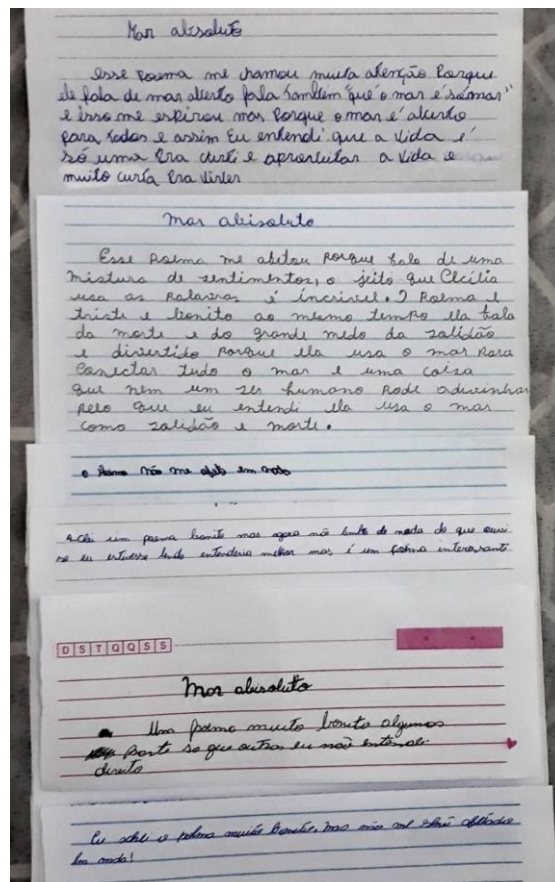 Mar absoluto
Esse poema me chamou muita atenção Porque
ele fala de mar aberto fala também "que o mar é só mar"
e isso me espirou mas Porque o mar é aberto
para todos e assim Eu entendi que a vida é
só uma Pra curti e aproveitar a vida e
muito curta Pra viver
Mar abisoluto
Esse Poema me afetou Porque fala de uma
mistura de sentimentos, o jeito que Clcília
usa as Palavras é incrivel. O Poema é
triste e bonito ao mesmo tempo ela fala
da morte e do grande medo da salidão
e divertido Porque ela usa o mar Para
Conectar tudo o mar é uma coisa
que nem um ser humano Pode aduvinhar
Pelo que eu entendi ela usa o mar
como salidão e morte.
o não me afeto em nada
Achei um poema bonito mas agora não lembro de nada do que ouvi
se eu estivesse lendo entenderia melhor mas é um poema interesante
D S T Q Q S S
Mar abisoluto
Um poema muito bonito algumas
parte so que outra eu não entendi
direito
Eu achei o poema muito bonito, mas não me
em nada!